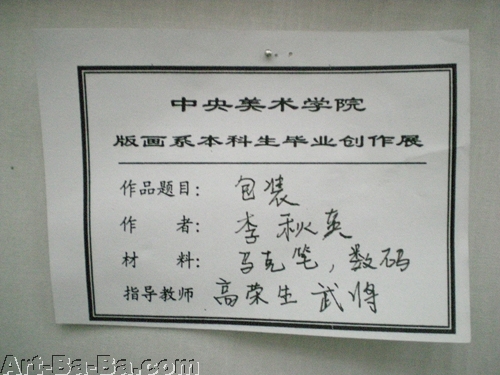 中央美术学院
版画系本科生毕业创作展
作品题目: 包装
作 者: 李秋英
材 料: 马克笔,数码
指导教师 高荣生 武将
Art-Ba-Ba.com